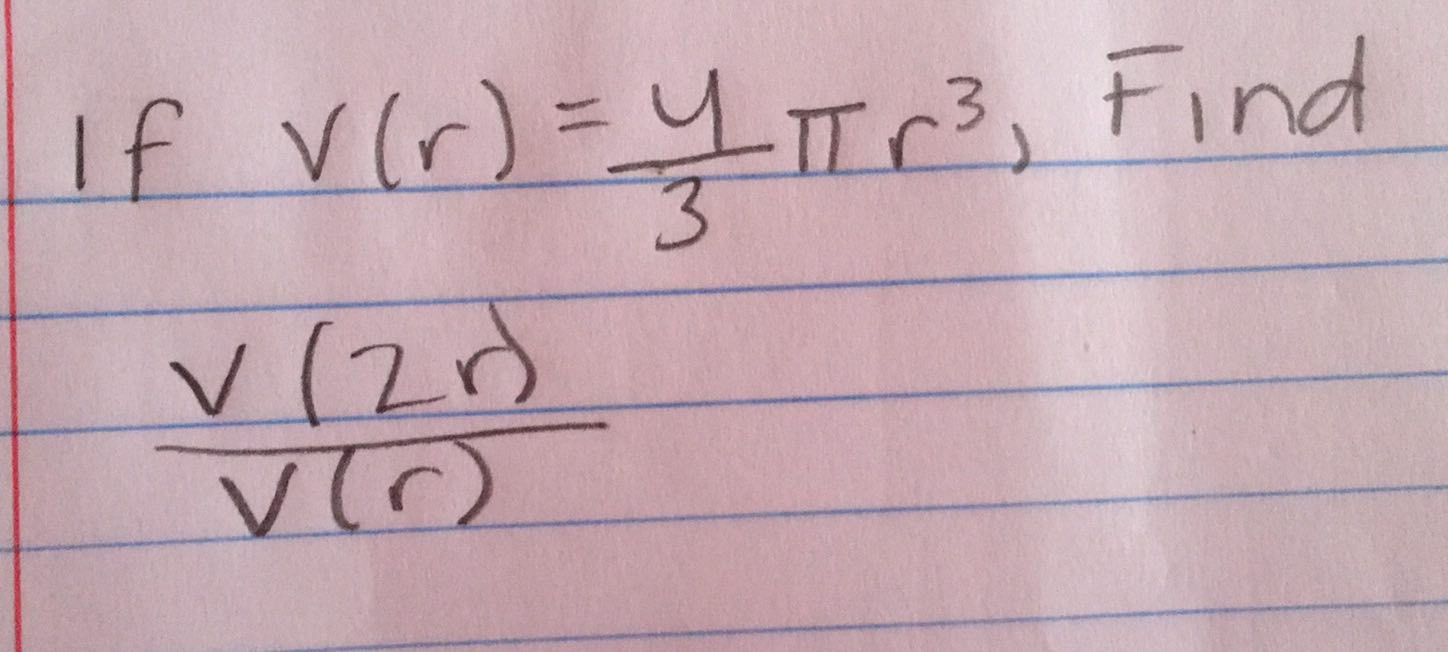 If V(r) = 4/3 πr³, Find
V(2r)/V(r)